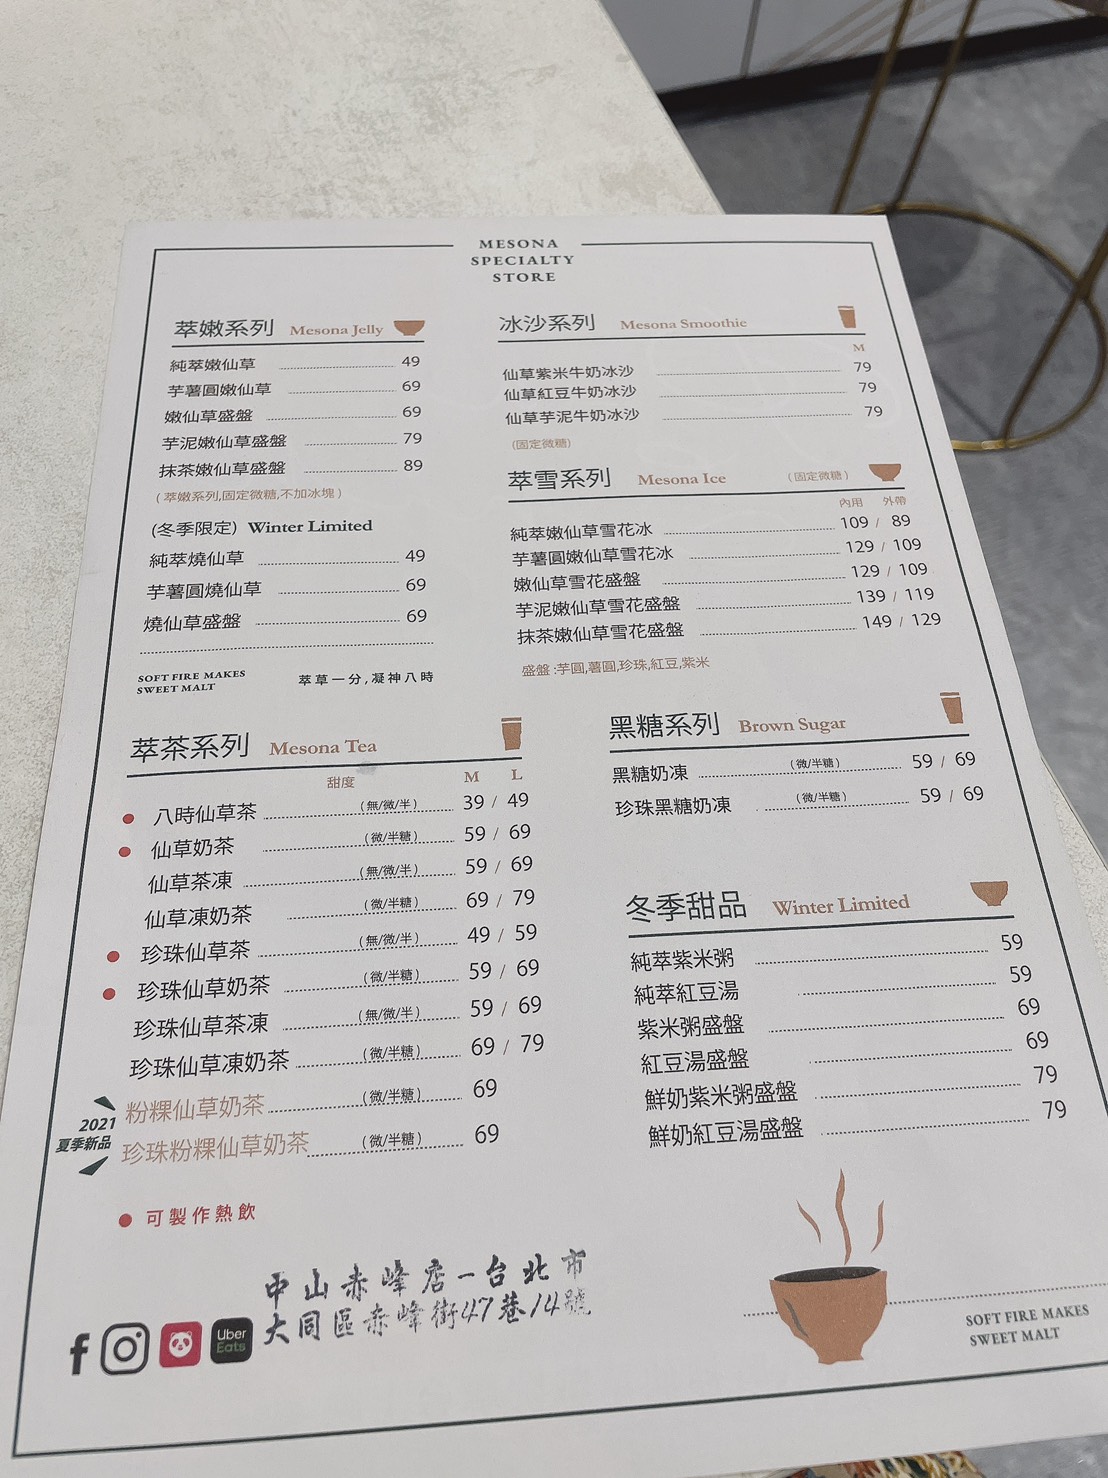 MESONA
SPECIALTY
STORE
萃嫩系列 Mesona Jelly
純萃嫩仙草 49
芋薯圓嫩仙草 69
嫩仙草盛盤 69
芋泥嫩仙草盛盤 79
抹茶嫩仙草盛盤 89
(萃嫩系列,固定微糖,不加冰塊)
(冬季限定) Winter Limited
純萃燒仙草 49
芋薯圓燒仙草 69
燒仙草盛盤 69
SOFT FIRE MAKES
SWEET MALT
萃草一分,凝神八時
冰沙系列 Mesona Smoothie
M
仙草紫米牛奶冰沙 79
仙草紅豆牛奶冰沙 79
仙草芋泥牛奶冰沙 79
(固定微糖)
萃雪系列 Mesona Ice (固定微糖)
內用 外帶
純萃嫩仙草雪花冰 109 / 89
芋薯圓嫩仙草雪花冰 129 / 109
嫩仙草雪花盛盤 129 / 109
芋泥嫩仙草雪花盛盤 139 / 119
抹茶嫩仙草雪花盛盤 149 / 129
盛盤:芋圓,薯圓,珍珠,紅豆,紫米
萃茶系列 Mesona Tea
甜度 M L
八時仙草茶 (無/微/半) 39 / 49
仙草奶茶 (微/半糖) 59 / 69
仙草茶凍 (無/微/半) 59 / 69
仙草凍奶茶 (微/半糖) 69 / 79
珍珠仙草茶 (無/微/半) 49 / 59
珍珠仙草奶茶 (微/半糖) 59 / 69
珍珠仙草茶凍 (無/微/半) 59 / 69
珍珠仙草凍奶茶 (微/半糖) 69 / 79
2021
夏季新品
粉粿仙草奶茶 (微/半糖) 69
珍珠粉粿仙草奶茶 (微/半糖) 69
可製作熱飲
黑糖系列 Brown Sugar
黑糖奶凍 (微/半糖) 59 / 69
珍珠黑糖奶凍 (微/半糖) 59 / 69
冬季甜品 Winter Limited
純萃紫米粥 59
純萃紅豆湯 59
紫米粥盛盤 69
紅豆湯盛盤 69
鮮奶紫米粥盛盤 79
鮮奶紅豆湯盛盤 79
中山赤峰店-台北市
大同區赤峰街47巷14號
Uber
Eats
SOFT FIRE MAKES
SWEET MALT